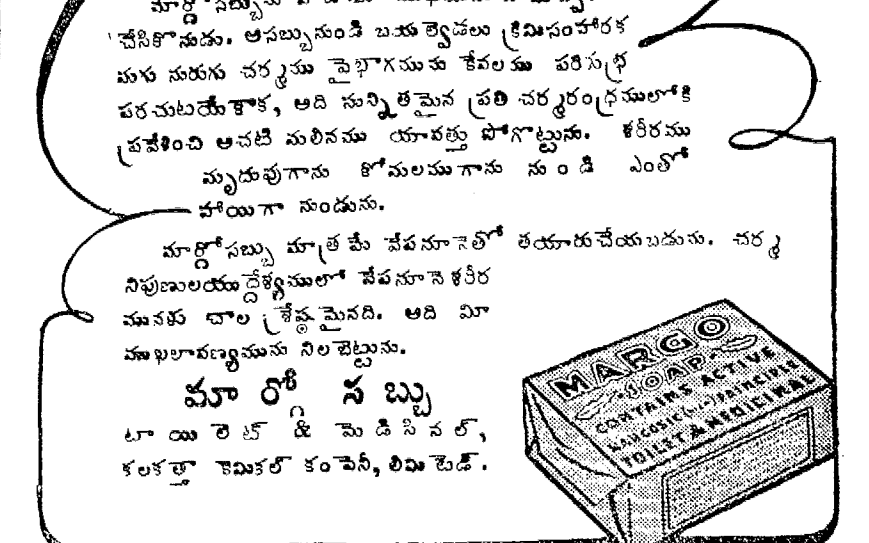 మార్గో సబ్బును
చేసికొనుడు. ఆసబ్బునుండి బయల్వెడలు క్రిమిసంహారక
మగు నురుగు చర్మము పైభాగమును కేవలము పరిశుభ్ర
పరచుటయేకాక, అది సున్నితమైన ప్రతి చర్మరంధ్రములోకి
ప్రవేశించి అచటి మలినము యావత్తు పోగొట్టును. శరీరము
మృదువుగాను కోమలముగాను నుండి ఎంతో
హాయిగా నుండును.
మార్గోసబ్బు మాత్రమే వేపనూనెతో తయారుచేయబడును. చర్మ
నిపుణులయుద్దేశ్యములో వేపనూనె శరీర
మునకు చాల శ్రేష్ఠమైనది. అది మీ
ముఖలావణ్యమును నిలబెట్టును.
మార్గో సబ్బు
టాయిలెట్ & మెడిసినల్,
కలకత్తా కెమికల్ కంపెనీ, లిమిటెడ్.
MARGO
SOAP
CONTAINS ACTIVE
MARGOSIC PRINCIPLE
TOILET & MEDICINAL